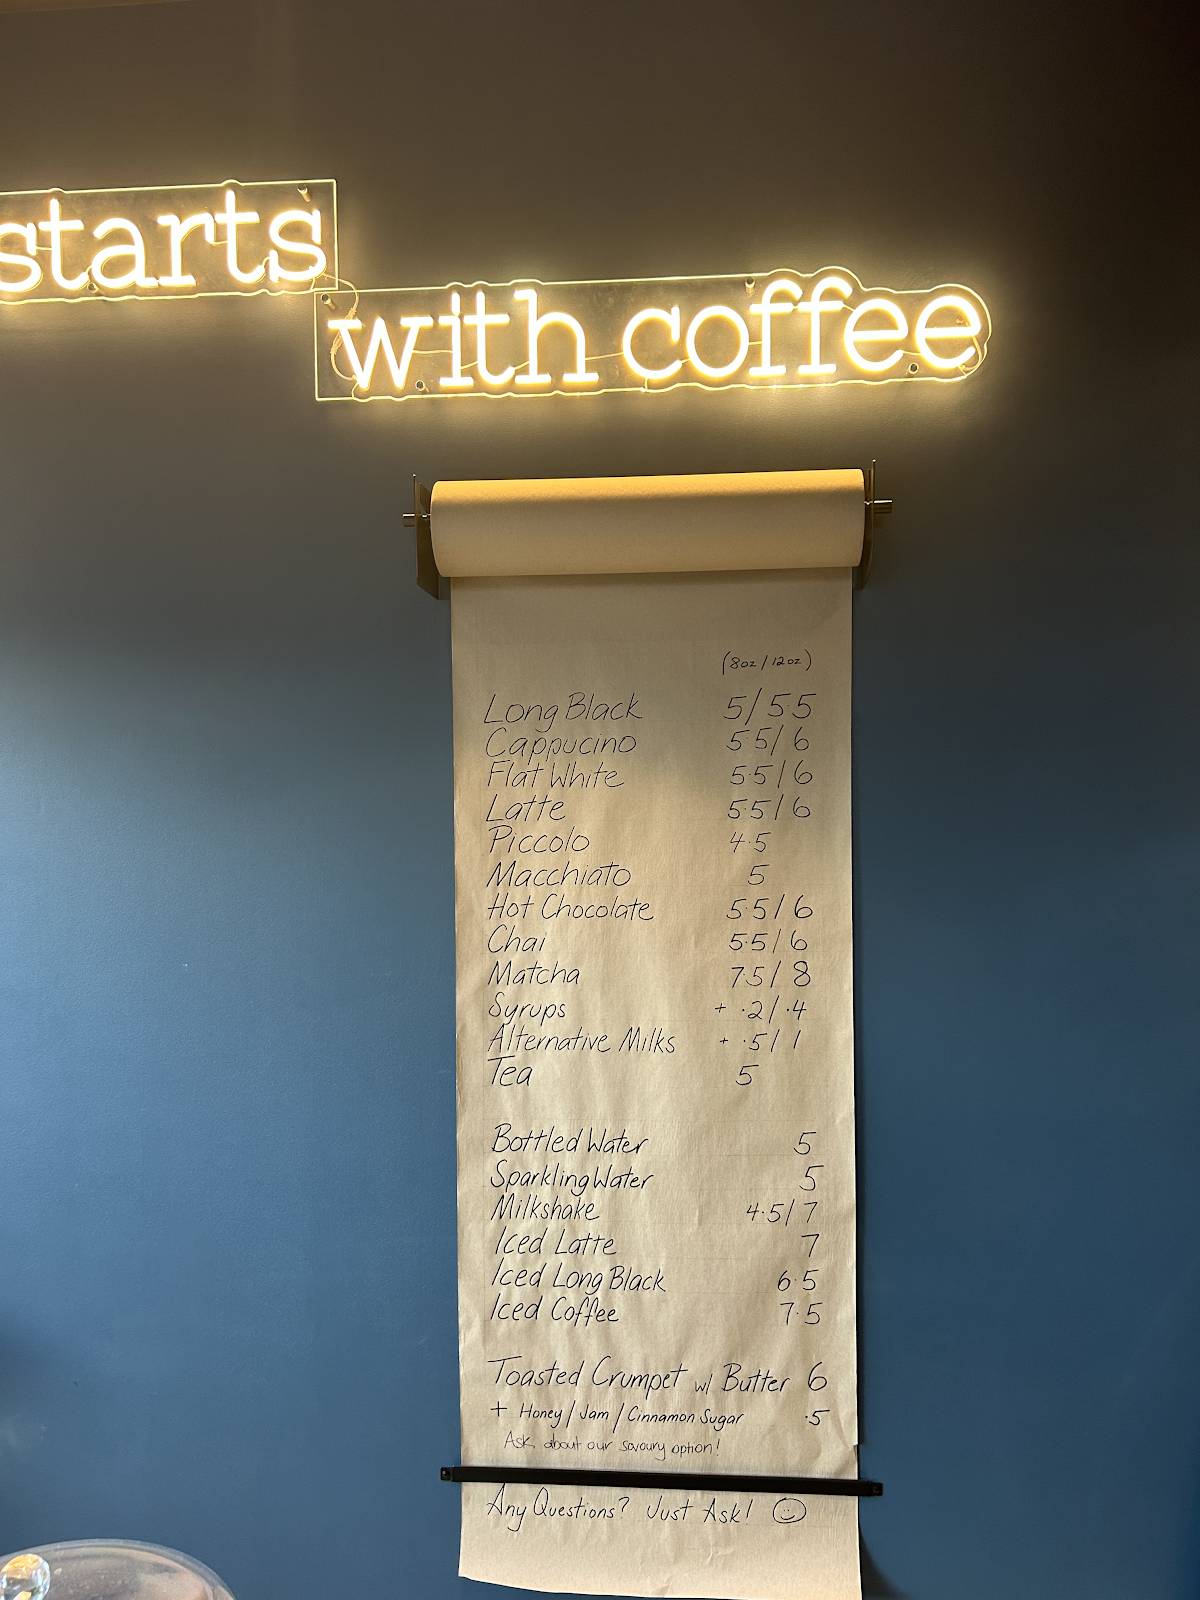 starts
with coffee
(8oz/12oz)
Long Black 5/5.5
Cappucino 5.5/6
Flat White 5.5/6
Latte 5.5/6
Piccolo 4.5
Macchiato 5
Hot Chocolate 5.5/6
Chai 5.5/6
Matcha 7.5/8
Syrups + .2/.4
Alternative Milks + .5/1
Tea 5
Bottled Water 5
Sparkling Water 5
Milkshake 4.5/7
Iced Latte 7
Iced Long Black 6.5
Iced Coffee 7.5
Toasted Crumpet w/ Butter 6
+ Honey/Jam/Cinnamon Sugar .5
Ask about our savoury option!
Any Questions? Just Ask! ☺